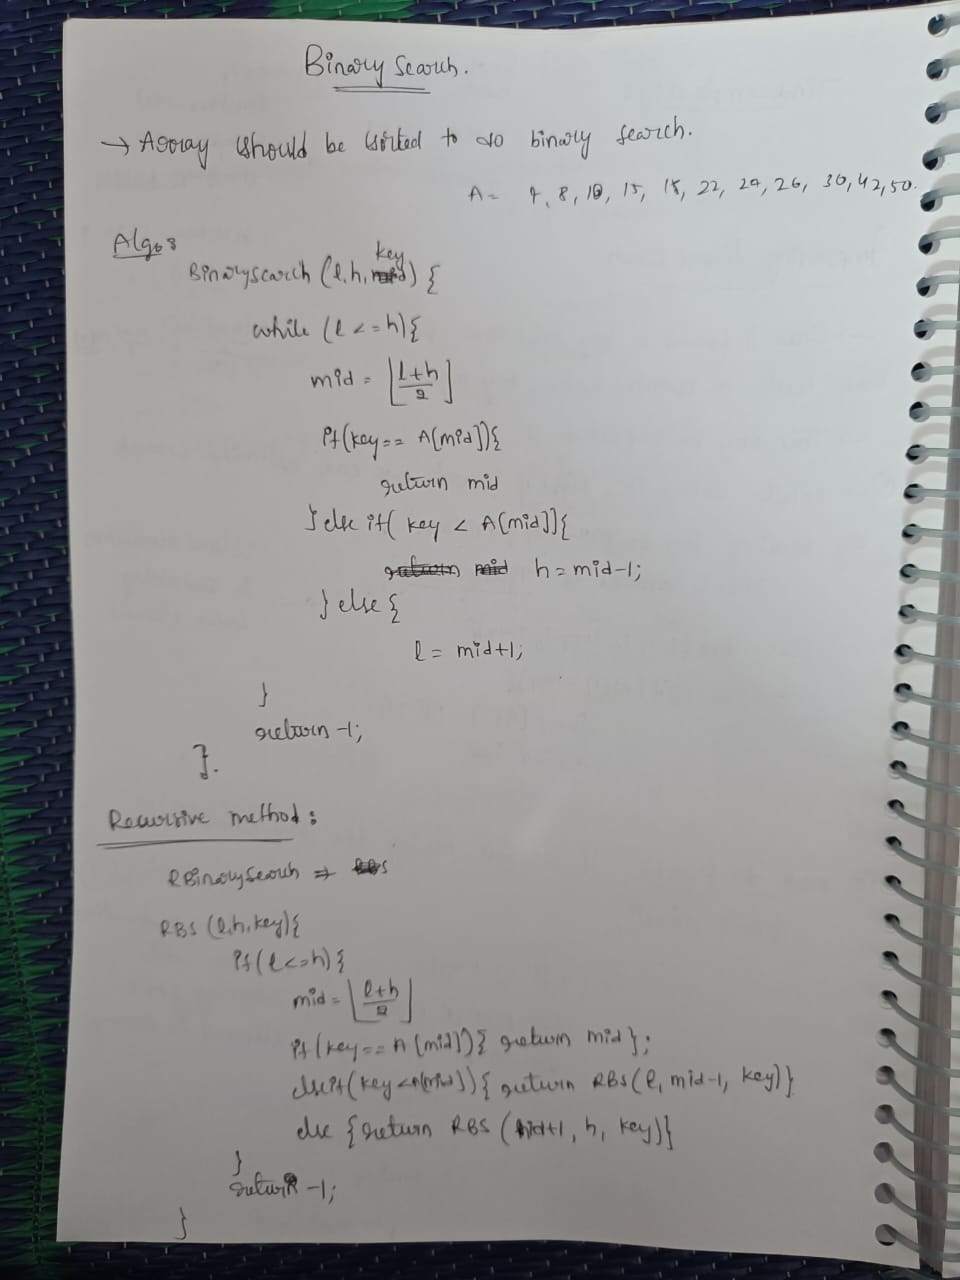 Binary Search.
→ Array should be sorted to do binary search.
A = 4, 8, 10, 15, 18, 22, 24, 26, 30, 42, 50.
Algo:
key
Binarysearch (l, h, mid) {
while (l <= h) {
mid = ⌊(l+h)/2⌋
if(key == A[mid]){
return mid
} else if( key < A[mid]]{
return mid h = mid-1;
} else {
l = mid+1;
}
return -1;
}.
Recursive method:
RBinarySearch ⇒ RBS
RBS (l, h, key){
if(l<=h){
mid = ⌊(l+h)/2⌋
if(key == A[mid]){ return mid};
else if(key<A[mid]){ return RBS(l, mid-1, key)}
else {return RBS (mid+1, h, key)}
}
return -1;
}